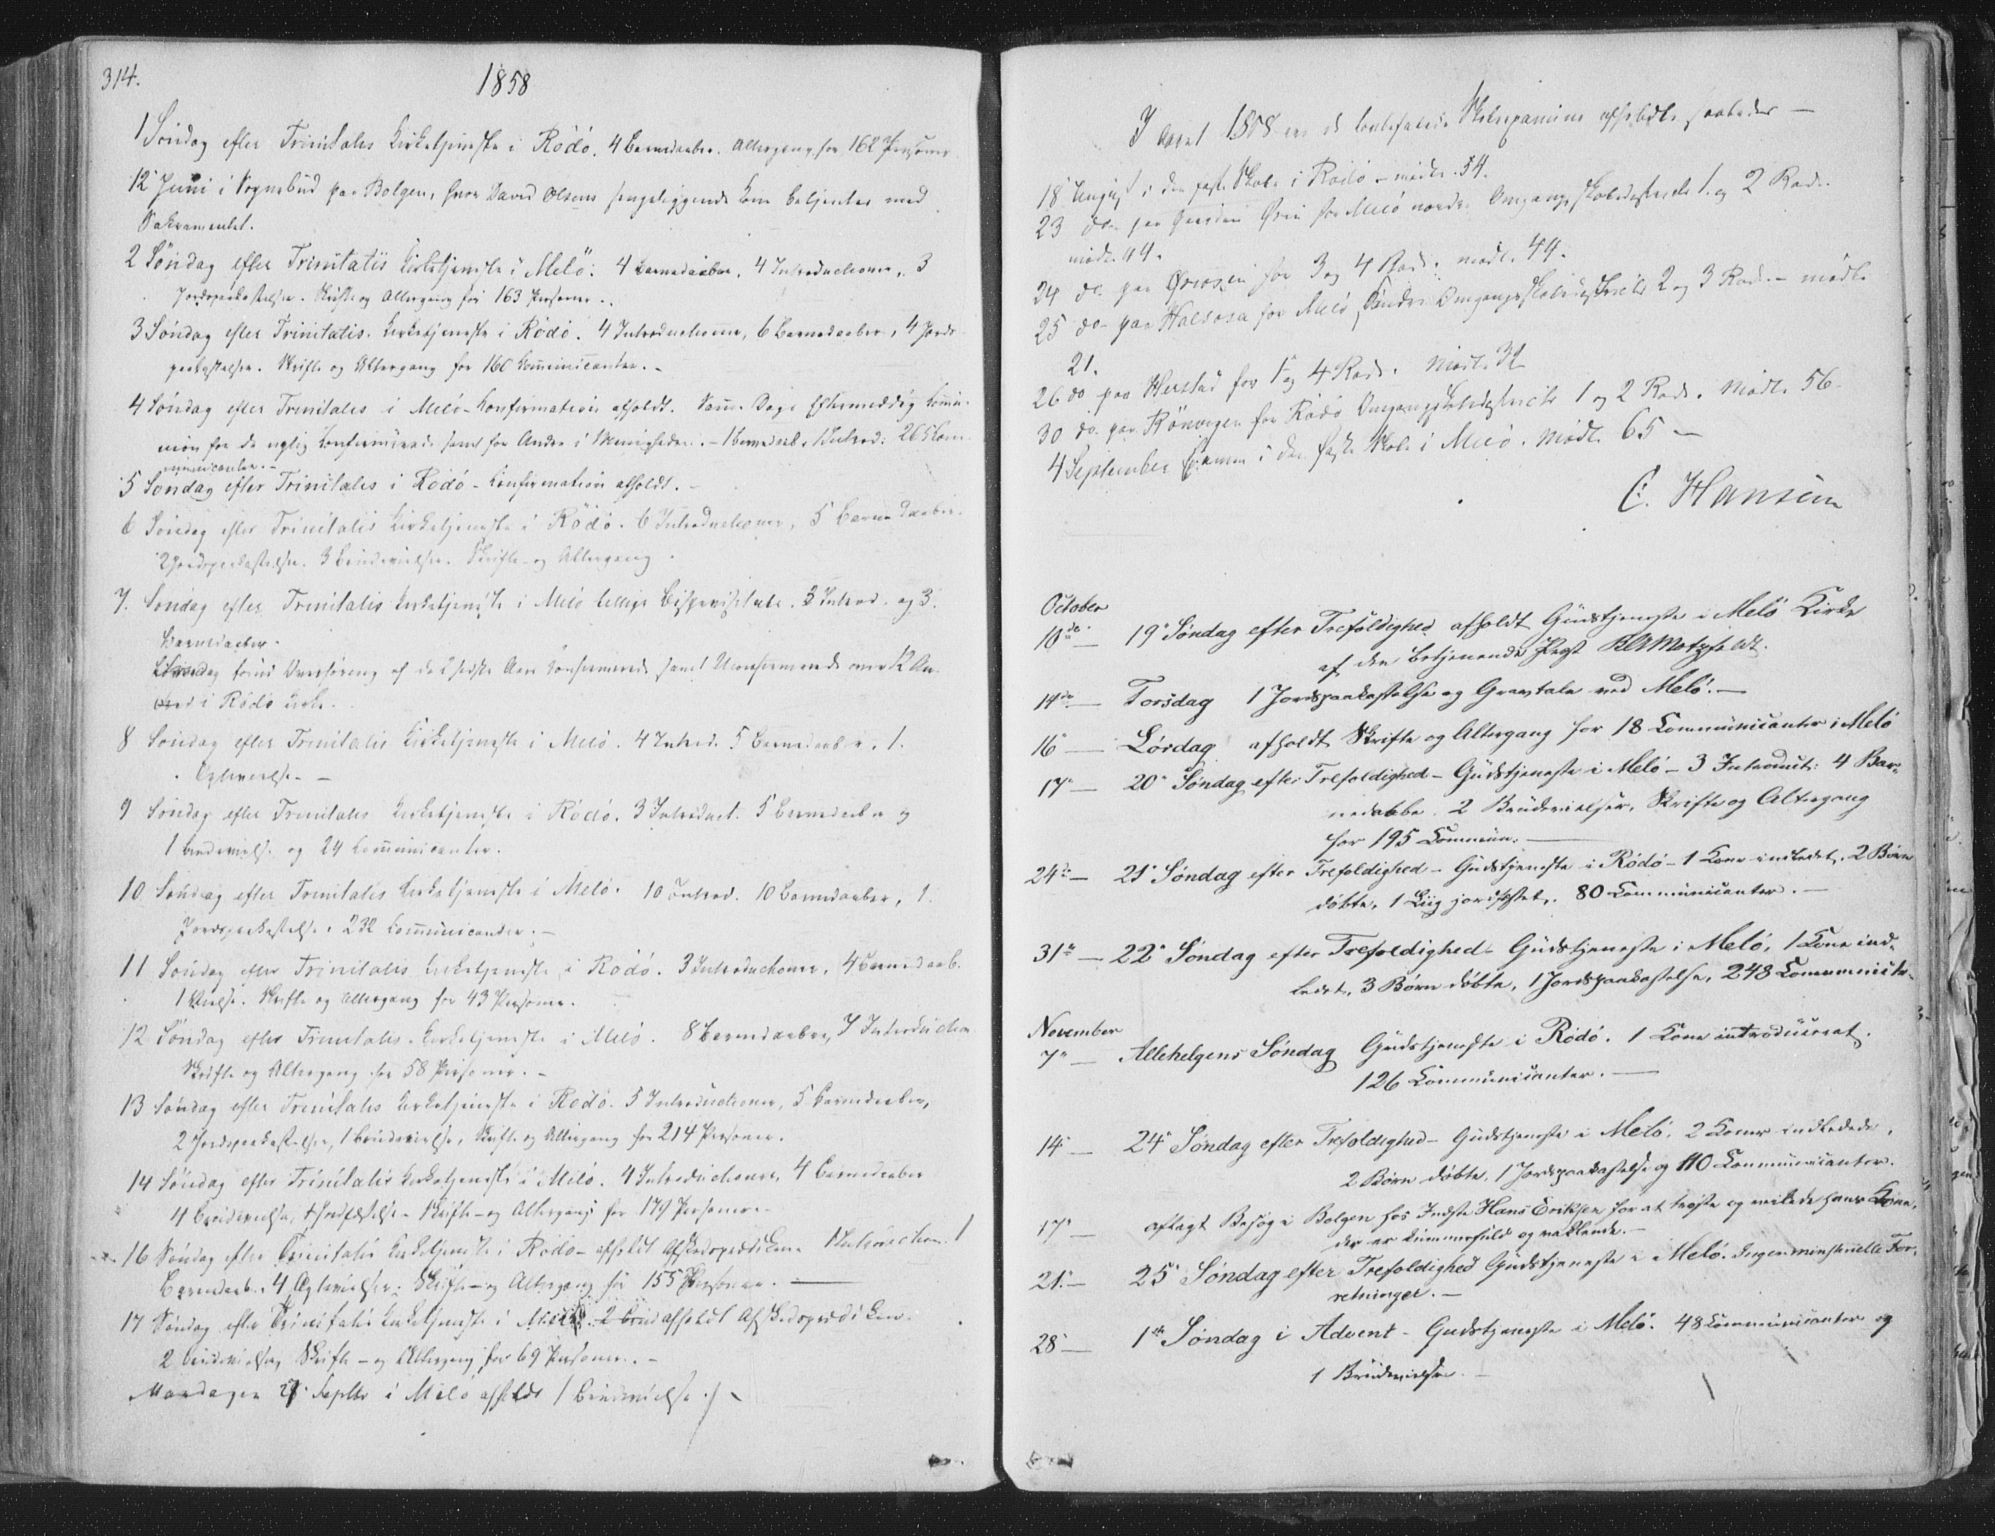 314.
1858
1 Søndag efter Trinitatis Kirketjeneste i Rödö. 4 Barnedaaber. Altergang for 162 Personer
12 Juni i Sognebud paa Bolgen, hvor David Olsens sengeliggende Kone betjentes med
Sakramentet.
2 Søndag efter Trinitatis Kirketjeneste i Melö. 4 Barnedaaber, 4 Introductioner, 3
Jordpaakastelse. Skrifte og Altergang for 163 Personer.
3 Søndag efter Trinitatis. Kirketjeneste i Rödö. 4 Introductioner, 6 Barnedaaber, 4 Jords
paakastelser. Skrifte og Altergang for 160 Communicanter. -
4 Søndag efter Trinitatis i Melö - Confirmation afholdt. Samme Dags Eftermiddag Commu-
nion for de nylig Confirmerede samt for Andre i Menigheden. - 1 Barnedaab, 1 Introd: 265 Com
municanter. -
5 Søndag efter Trinitatis i Rödö - Confirmation afholdt. -
6 Søndag efter Trinitatis Kirketjeneste i Rödö. 6 Introductioner, 5 Barnedaaber.
2 Jordspaakastelser. 3 Brudevielser. Skrifte- og Altergang.
7. Søndag efter Trinitatis Kirketjeneste i Melö Bispevisitats. 3 Introd. og 3.
Barnedaaber.
af de 2 sidste Aars Confirmerede samt Uconfirmerede over 12 Aar
i Rödö Kirke.
8 Søndag efter Trinitatis Kirketjeneste i Melö. 4 Introd. 5 Barnedaaber. 1.
Ægtevielse. -
9 Søndag efter Trinitatis Kirketjeneste i Rödö. 3 Introduct. 5 Barnedaaber og
1 Brudevielse og 24 Communicanter.
10 Søndag efter Trinitatis Kirketjeneste i Melö. 10 Introd. 10 Barnedaaber, 1.
Jordspaakastelse. 232 Communicanter. -
11 Søndag efter Trinitatis Kirketjeneste i Rödö. 3 Introductioner, 4 Barnedaab.
1 Vielse. Skrifte og Altergang for 43 Personer.
12 Søndag efter Trinitatis. Kirketjeneste i Melö. 8 Barnedaaber, 7 Introduction
Skrifte og Altergang for 58 Personer. -
13 Søndag efter Trinitatis Kirketjeneste i Rödö. 5 Introductioner, 5 Barnedaaber,
2 Jordspaakastelser, 1 Brudevielse, Skrifte og Altergang for 214 Personer.
14 Søndag efter Trinitatis Kirketjeneste i Melö. 4 Introductioner, 4 Barnedaaber
4 Brudevielse, Skrifte- og Altergang for 179 Personer.
16 Søndag efter Trinitatis Kirketjeneste i Rödö - afholdt Afskedsprædiken. 1 Introduction. 1
Barnedaab. 4 Ægtevielser. Skrifte- og Altergang for 155 Personer. -
17 Søndag efter Trinitatis Kirketjeneste i Melö. 2 Brud afholdt Afskedsprædiken.
2 Brudevielser, Skrifte- og Altergang for 69 Personer. -
Mandagen Septbr i Melö afholdt 1 Brudevielse. -
I Aaret 1858 ere de Skoleexamina afholdte saaledes -
18 August i den faste Skole i Rödö - mødte 54.
23 do paa Gaarden Øren for Melö nordre Omgangsskoledistricts 1. og 2 Rode.
mødte 44.
24 do. paa for 3 og 4 Rode. mødte 49.
25 do paa Halsosa for Melö Søndre Omgangsskoledistricts 2 og 3 Rode. - mødte
21.
26 do paa Herstad for 1 og 4 Rode. Mødte 32
30 do. paa Rönvigen for Rödö Omgangsskoledistricts 1 og 2 Rode. Mødte 56.
4 September Examen i den faste Skole i Melö. Mødte 65 -
C. Hansen
October
10de - 19de Søndag efter Trefoldighed afholdt Gudstjeneste i Melö Kirke
af den betjenende Præst Motzfeldt.
14de - Torsdag 1 Jordspaakastelse og Gravtale ved Melö. -
16 - Lørdag afholdt Skrifte og Altergang for 18 Communicanter i Melö
17 - 20 Søndag efter Trefoldighed - Gudstjeneste i Melö - 3 Introduct: 4 Bar-
nedaabe. 2 Brudevielser, Skrifte og Altergang
for 195 Commun. -
24de - 21 Søndag efter Trefoldighed - Gudstjeneste i Rödö - 1 Kone indledet. 2 Børn
døbte, 1 Liig jordfæstet. 80 Communicanter. -
31te - 22 Søndag efter Trefoldighed - Gudstjeneste i Melö, 1 Kone ind-
ledet, 3 Børn døbte, 1 Jordspaakastelse, 248 Communicter.
November
7 - Allehelgens Søndag Gudstjeneste i Rödö. 1 Kone introduceret.
126 Communicanter. -
14 - 24 Søndag efter Trefoldighed - Gudstjeneste i Melö. 2 Koner indledede,
2 Børn døbte, 1 Jordspaakastelse og 110 Communicanter.
17 - aflagt Besøg i Bolgen hos Inderste Hans Eriksen for at trøste og veilede hans Kone,
der er kummerfuld og vaklende. -
21. - 25 Søndag efter Trefoldighed Gudstjeneste i Melö. Ingen ministerielle For-
retninger. -
28 - 1ste Søndag i Advent - Gudstjeneste i Melö. 48 Communicanter og
1 Brudevielse. -